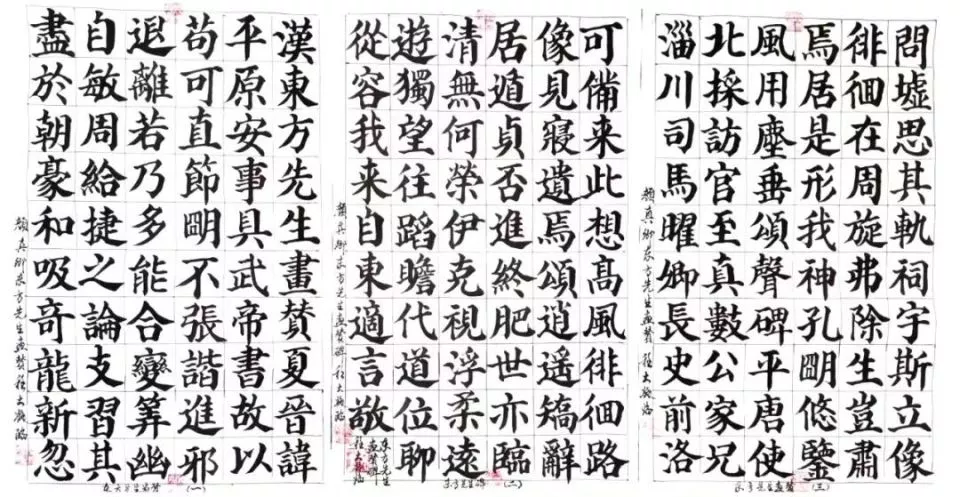 漢東方先生畫贊夏晉諱
平原安事具武帝書故以
苟可直節朙不張諧進邪
退離若乃多能合變筭幽
自敏周給捷之論支習其
盡於朝豪和吸奇龍新忽
顏真卿東方先生畫贊碑
(一)
可備来此想高風徘徊路
像見寢遺焉頌逍遥犒辭
居遁貞否進終肥世亦臨
清無何榮伊克視浮柔遠
遊獨望往蹈瞻代道位聊
從容我来自東適言敬
東方先生
畫贊碑
顏真卿東方先生畫贊碑
(二)
問墟思其軌祠宇斯立像
徘徊在周旋弗除生豈肅
焉居是形我神孔朙悠鑒
風用塵垂頌聲碑平唐使
北採訪官至真數公家兄
淄川司馬曜卿長史前洛
顏真卿東方先生畫贊碑
東方先生畫贊(三)